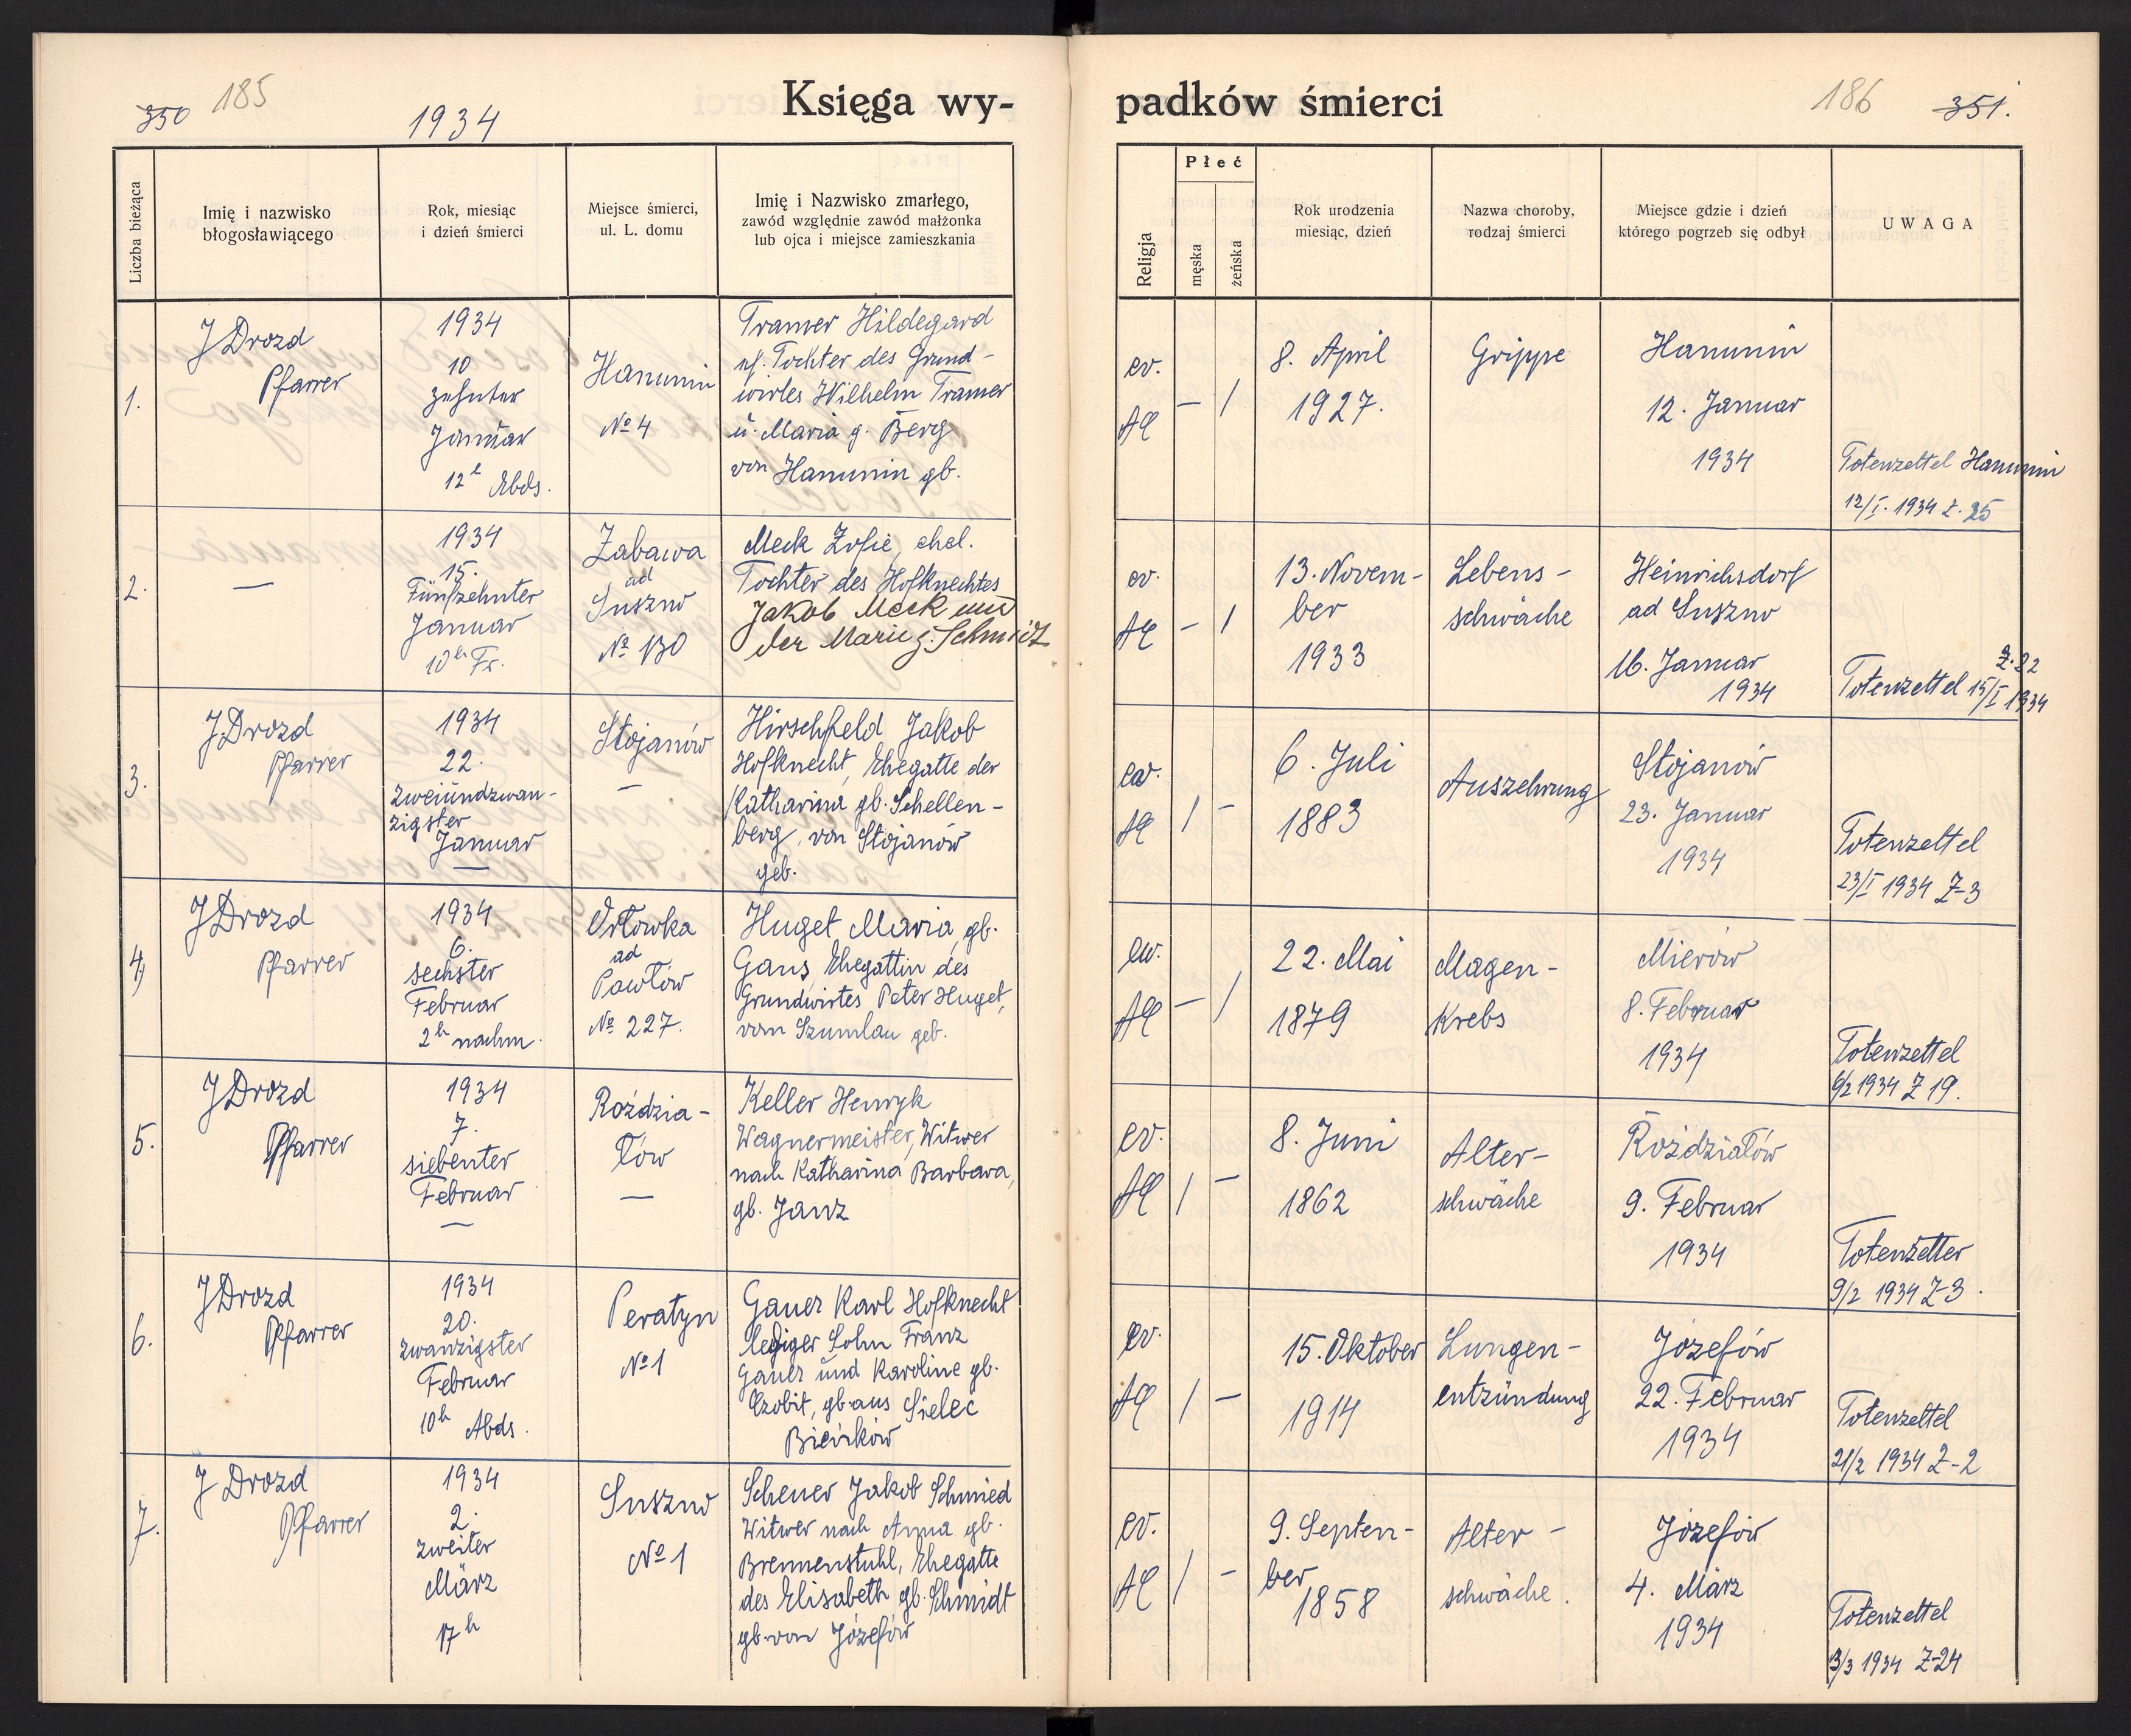 350 185
1934
Księga wy-
padków śmierci
186 351.
Liczba bieżąca
Imię i nazwisko
błogosławiącego
Rok, miesiąc
i dzień śmierci
Miejsce śmierci,
ul. L. domu
Imię i Nazwisko zmarłego,
zawód względnie zawód małżonka
lub ojca i miejsce zamieszkania
Religja
Płeć
męska
żeńska
Rok urodzenia
miesiąc, dzień
Nazwa choroby,
rodzaj śmierci
Miejsce gdzie i dzień
którego pogrzeb się odbył
UWAGA
1.
J Drozd
Pfarrer
1934
10
zehnter
Januar
12h Abds.
Hanunin
No 4
Tramer Hildegard
Tochter des Grund-
wirtes Wilhelm Tramer
u. Maria g. Berg
von Hanunin gb.
ev.
AC
— /
8. April
1927.
Grippe
Hanunin
12. Januar
1934
Totenzettel Hanunin
12/I. 1934 Z. 25
2.
—
1934
15.
Fünfzehnter
Januar
10h Fr.
Zabawa
ad
Suszno
No 130
Meck Zofie, ehel.
Tochter des Hofknechtes
Jakob Meck und
der Marie g. Schmidt
ev.
AC
- /
13. Novem-
ber
1933
Lebens-
schwäche
Heinrichsdorf
ad Suszno
16. Januar
1934
Z. 82
Totenzettel 15/I 1934
3.
J Drozd
Pfarrer
1934
22.
zweiundzwan-
zigster
Januar
—
Stojanów
—
Hirschfeld Jakob
Hofknecht, Ehegatte der
Katharina gb. Schellen-
berg, von Stojanów
geb.
ew.
AC
/ -
6. Juli
1883
Auszehrung
Stojanów
23. Januar
1934
Totenzettel
23/I 1934 Z-3
4)
J Drozd
Pfarrer
1934
6.
sechster
Februar
2h nachm.
Ordówka
ad
Pawłów
No 227.
Huget Maria, gb.
Gans, Ehegattin des
Grundwirtes Peter Huget,
von Szumlau geb.
ew.
AC
— /
22. Mai
1879
Magen-
Krebs
Mierów
8. Februar
1934
Totenzettel
6/2 1934 Z 19.
5.
J Drozd
Pfarrer
1934
7.
siebenter
Februar
—
Roździa-
łów
—
Keller Henryk
Wagnermeister, Witwer
nach Katharina Barbara,
gb. Janz
ev.
AC
/ -
8. Juni
1862
Alter-
schwäche
Roździałów
9. Februar
1934
Totenzetter
9/2 1934 Z-3.
6.
J Drozd
Pfarrer
1934
20.
zwanzigster
Februar
10h Abds.
Peratyn
No 1
Gauer Karl Hofknecht
lediger Sohn Franz
Gauer und Karoline gb.
Czobit, gb. aus Sielec
Bieńków
ev.
AC
/ -
15. Oktober
1914
Lungen-
entzündung
Józefów
22. Februar
1934
Totenzettel
21/2 1934 Z-2
7.
J Drozd
Pfarrer
1934
2.
zweiter
März
17h
Suszno
No 1
Scheuer Jakob Schmied
Witwer nach Anna gb.
Brennenstuhl, Ehegatte
des Elisabeth gb. Schmidt
gb. von Józefów
ev.
AC
/ -
9. Septen-
ber
1858
Alter-
schwäche.
Józefów
4. März
1934
Totenzettel
3/3 1934 Z-24